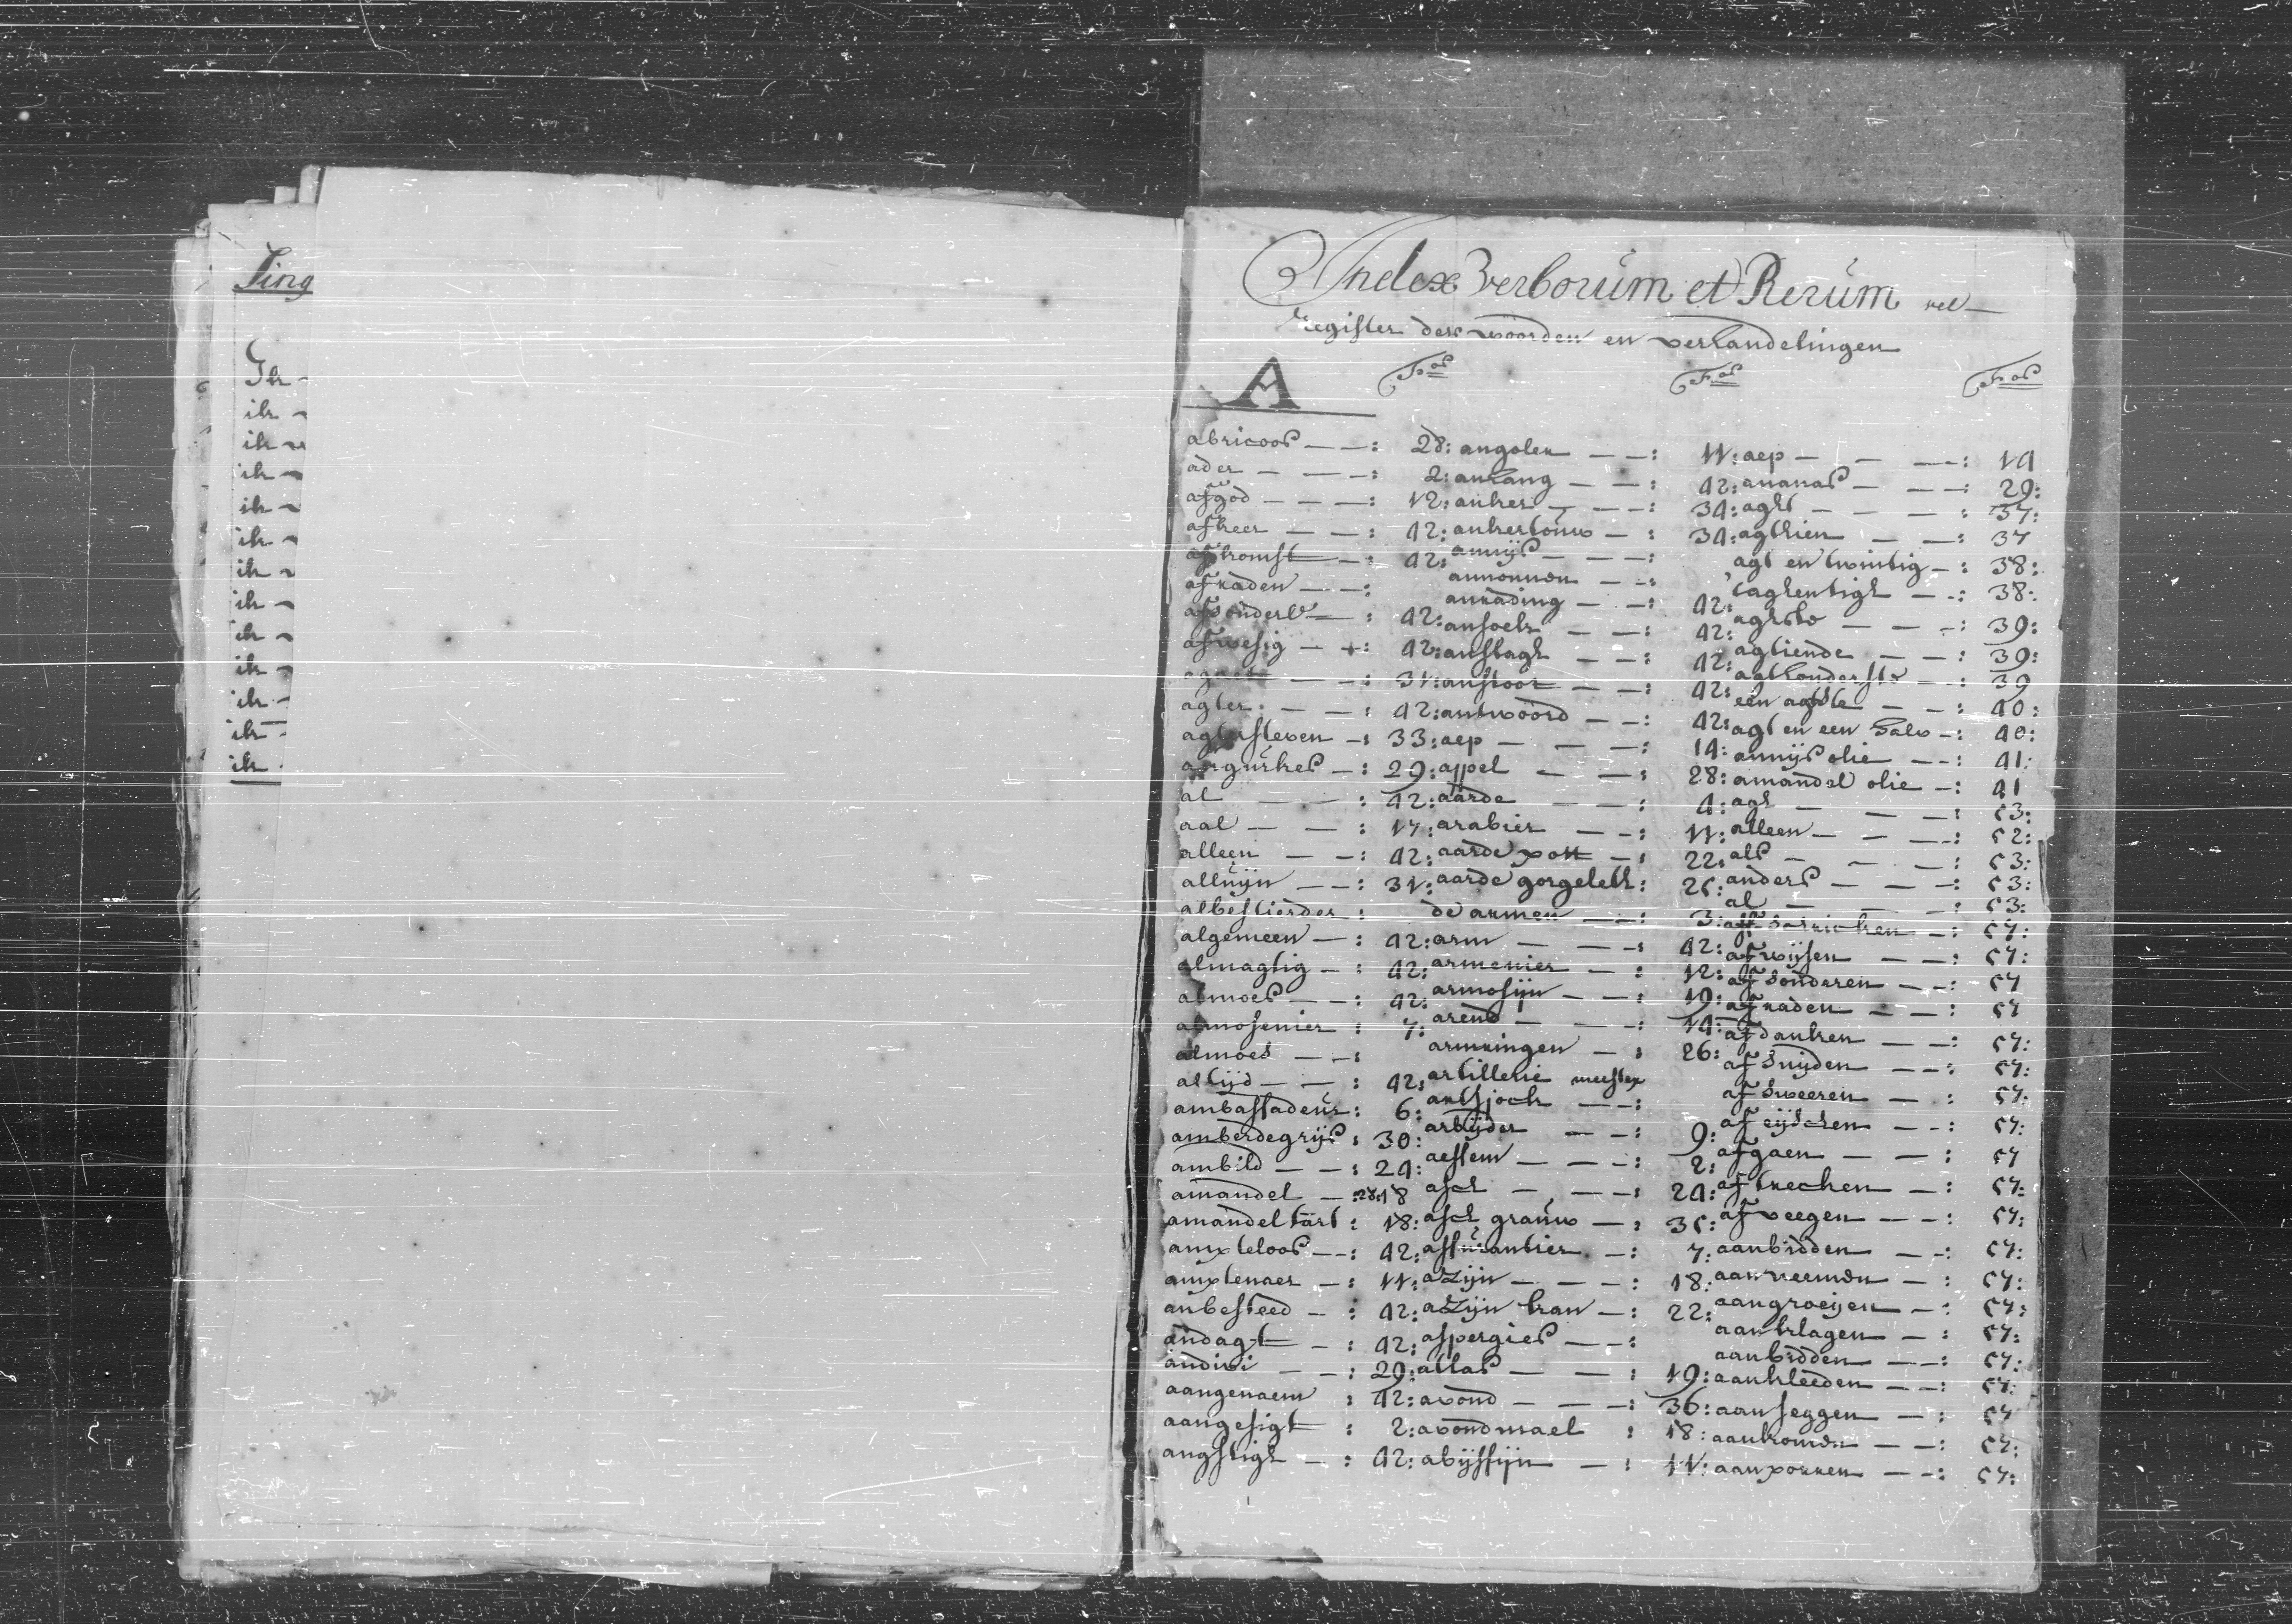 Sing
Ik -
ik -
ik -
ik -
ik -
ik -
ik -
ik -
ik -
ik -
ik -
ik -
ik -
Index Verborum et Rerum vel
register der woorden en verhandelingen
A
Fos
Fos
Fos
abricoos — — : 28:
ader — — — : 2:
afgod — — — : 12:
afkeer — — : 42:
afkomst — : 42:
afraden — — :
afsonderl — : 42:
afwesig — — : 42:
agaat — — : 31:
agter — — : 42:
agtersteven — : 33:
aegurkes — : 29:
al — — : 42:
aal — — : 17:
alleen — — : 42:
alluijn — — : 31:
albestierder :
algemeen — : 42:
almagtig — : 42:
almoes — — : 42:
almosenier : 7:
almoes — — :
altijd — — : 42:
ambassadeur : 6:
amberdegrijs : 30:
ambild — — : 24:
amandel — : 28:18
amandel tart : 18:
amxteloos — : 42:
amxtenaer — : 11:
anbesteed — : 42:
andagt — : 42:
andivi — — : 29:
aangenaem : 42:
aangesigt : 2:
angstigh — : 42:
angolen — — : 11:
anhang — — : 42:
anker — — — : 34:
ankertouw — : 34:
annijs — — — :
annonnen — — :
anrading — — : 42:
ansoek — — : 42:
anslagh — — : 42:
anstoot — — : 42:
antwoord — — : 42:
aep — — — : 14:
appel — — — : 28:
aarde — — : 4:
arabier — — : 11:
aarde pott — : 22:
aarde gorgelett : 25:
de armen — — : 3:
arm — — — : 42:
armenier — : 12:
armosijn — — : 19:
arend — — — : 14:
armringen — : 26:
artillerie meester
artsjock — — :
arbijder — — : 9:
aessem — — — : 2:
asch — — — : 24:
asch grauw — : 35:
assurantier — : 7:
azijn — — — : 18:
azijn kan — : 22:
aspergies — — :
atlas — — : 19:
avond — — — : 36:
avondmael : 18:
abijssijn — : 11:
aep — — — : 14
ananas — — — : 29:
aght — — — : 37:
agthien — — : 37
agt en twintig — : 38:
taghentigh — — : 38:
aghste — — — : 39:
agtiende — — : 39:
agthonderste — : 39
een aghte — — : 40:
agt en een halv — : 40:
annijs olie — — : 41:
amandel olie — : 41
agh — — — : 53:
alleen — — — : 52:
als — — — : 53:
anders — — — : 53:
al — — — : 53:
aff — : 57:
afwijsen — — : 57:
af sonderen — — : 57
afraden — — : 57
af danken — — : 57:
af snijden — — : 57:
af sweeren — : 57:
af eijschen — — : 57:
af gaen — — : 57
af trecken — : 57:
af veegen — — : 57:
aanbidden — — : 57:
aanneemen — : 57:
aangroeijen — : 57:
aanklagen — : 57:
aanbidden — — : 57:
aankleeden — — : 57:
aan seggen — : 57
aankomen — — : 57:
aanporren — — : 57: